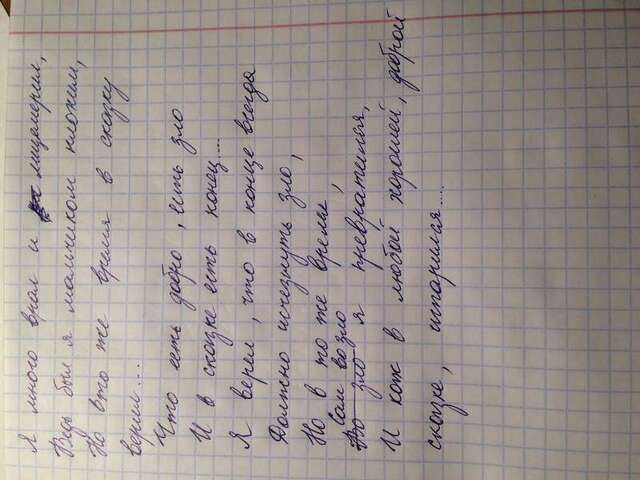 Я много врал и лицемерил,
Ведь был я мальчиком плохим,
Но в то же время в сказку
верил...
Что есть добро, есть зло
И в сказке есть конец....
Я верел, что в конце всегда
Должно исчезнуть зло,
Но в то же время,
Сам во зло
Во зло я превратился,
И как в любой хорошей, доброй
сказке, испарился....